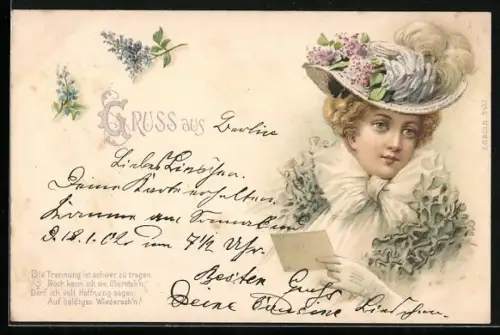 Gruss aus Berlin
Liebes Lieschen.
Deine Karte erhalten
Komme am Sonnabend
d. 18.1.02 um 7½ Uhr.
Besten Gruß
Deine Lieschen.
Die Trennung ist schwer zu tragen
Doch kann ich sie übersteh'n,
Darf ich voll Hoffnung sagen:
Auf baldiges Wiederseh'n!